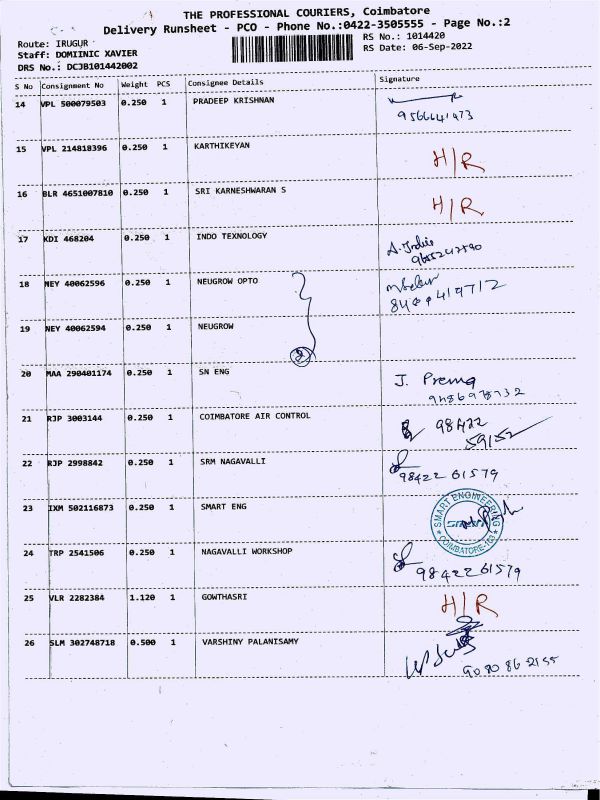 THE PROFESSIONAL COURIERS, Coimbatore
Delivery Runsheet - PCO - Phone No.:0422-3505555 - Page No.:2
Route: IRUGUR
RS No.: 1014420
Staff: DOMIINIC XAVIER
RS Date: 06-Sep-2022
DRS No.: DCJB101442002
S No Consignment No Weight PCS Consignee Details Signature
14 VPL 500079503 0.250 1 PRADEEP KRISHNAN
9566641473
15 VPL 214818396 0.250 1 KARTHIKEYAN H/R
16 BLR 4651007810 0.250 1 SRI KARNESHWARAN S H/R
17 KDI 468204 0.250 1 INDO TEXNOLOGY
18 NEY 40062596 0.250 1 NEUGROW OPTO
19 NEY 40062594 0.250 1 NEUGROW
2
20 MAA 290401174 0.250 1 SN ENG J. Prema
9486978732
21 RJP 3003144 0.250 1 COIMBATORE AIR CONTROL 98422
59152
22 RJP 2998842 0.250 1 SRM NAGAVALLI
98422 61579
23 IXM 502116873 0.250 1 SMART ENG
SMART ENGINEERING
COIMBATORE-103
24 TRP 2541506 0.250 1 NAGAVALLI WORKSHOP
98422 61579
25 VLR 2282384 1.120 1 GOWTHASRI H/R
26 SLM 302748718 0.500 1 VARSHINY PALANISAMY
9080862155